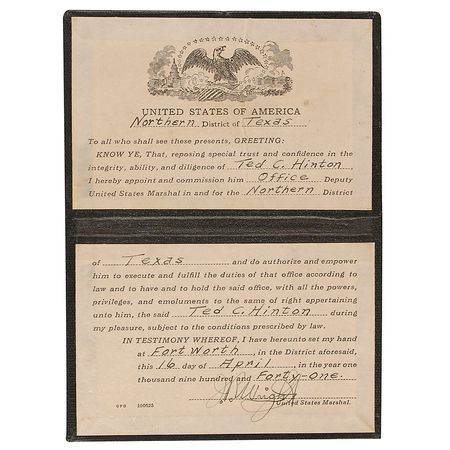 UNITED STATES OF AMERICA
Northern District of Texas
To all who shall see these presents, GREETING:
KNOW YE, That, reposing special trust and confidence in the
integrity, ability, and diligence of Ted C. Hinton,
I hereby appoint and commission him Office Deputy
United States Marshal in and for the Northern District
of Texas and do authorize and empower
him to execute and fulfill the duties of that office according to
law and to have and to hold the said office, with all the powers,
privileges, and emoluments to the same of right appertaining
unto him, the said Ted C. Hinton during
my pleasure, subject to the conditions prescribed by law.
IN TESTIMONY WHEREOF, I have hereunto set my hand
at Fort Worth, in the District aforesaid,
this 16 day of April, in the year one
thousand nine hundred and Forty-one.
Wright
United States Marshal.
GPO 100625